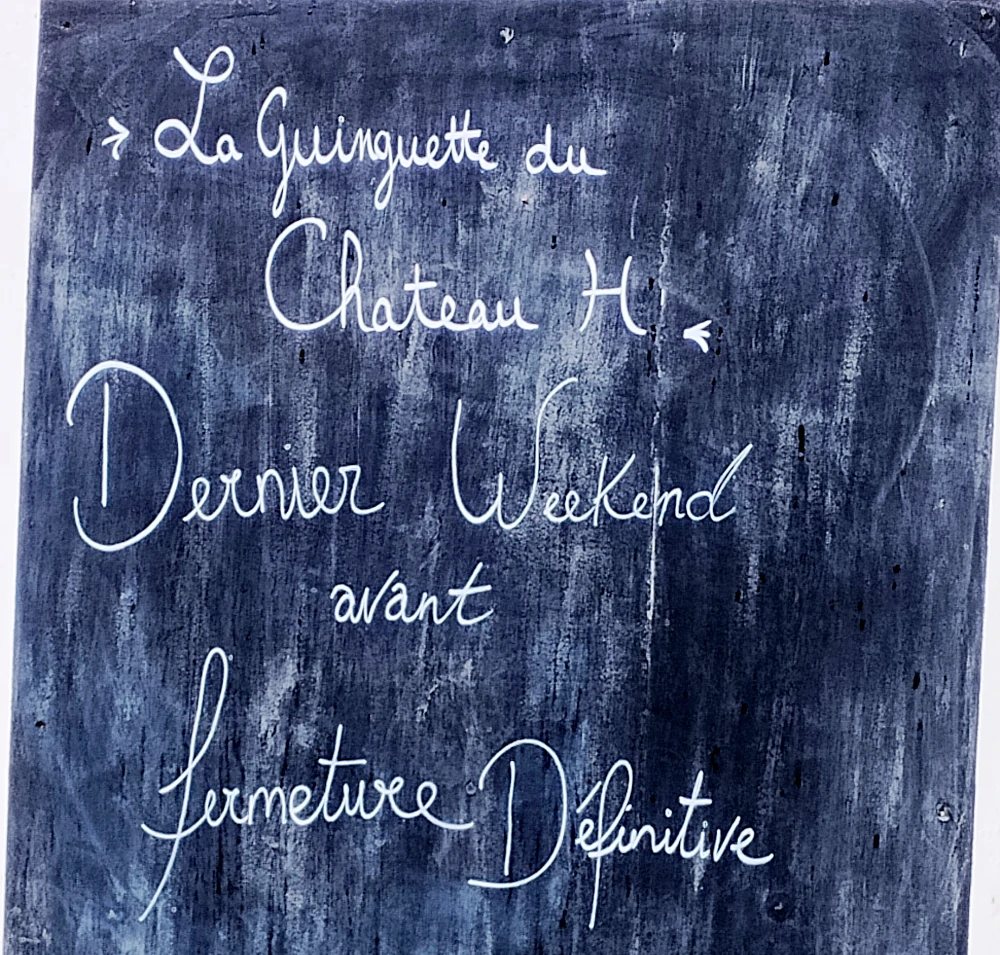 > La Guinguette du
Chateau H. <
Dernier Weekend
avant
fermeture Définitive